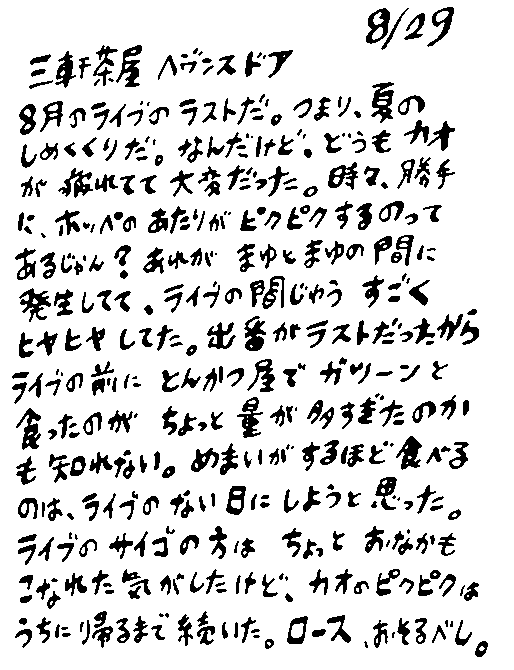 8/29
三軒茶屋 ヘヴンスドア
8月のライブのラストだ。つまり、夏の
しめくくりだ。なんだけど、どうも カオ
が 疲れてて 大変だった。時々、勝手
に、ホッペの あたりが ピクピクするのって
あるじゃん？ あれが まゆと まゆの 間に
発生してて、ライブの間じゅう すごく
ヒヤヒヤ してた。出番がラストだったから
ライブの前に とんかつ屋で ガツーンと
食ったのが ちょっと 量が多すぎたのか
も知れない。めまいがするほど食べる
のは、ライブのない日にしようと思った。
ライブの サイゴの方は ちょっと おなかも
こなれた気がしたけど、カオのピクピクは
うちに帰るまで続いた。ロース、おそるべし。